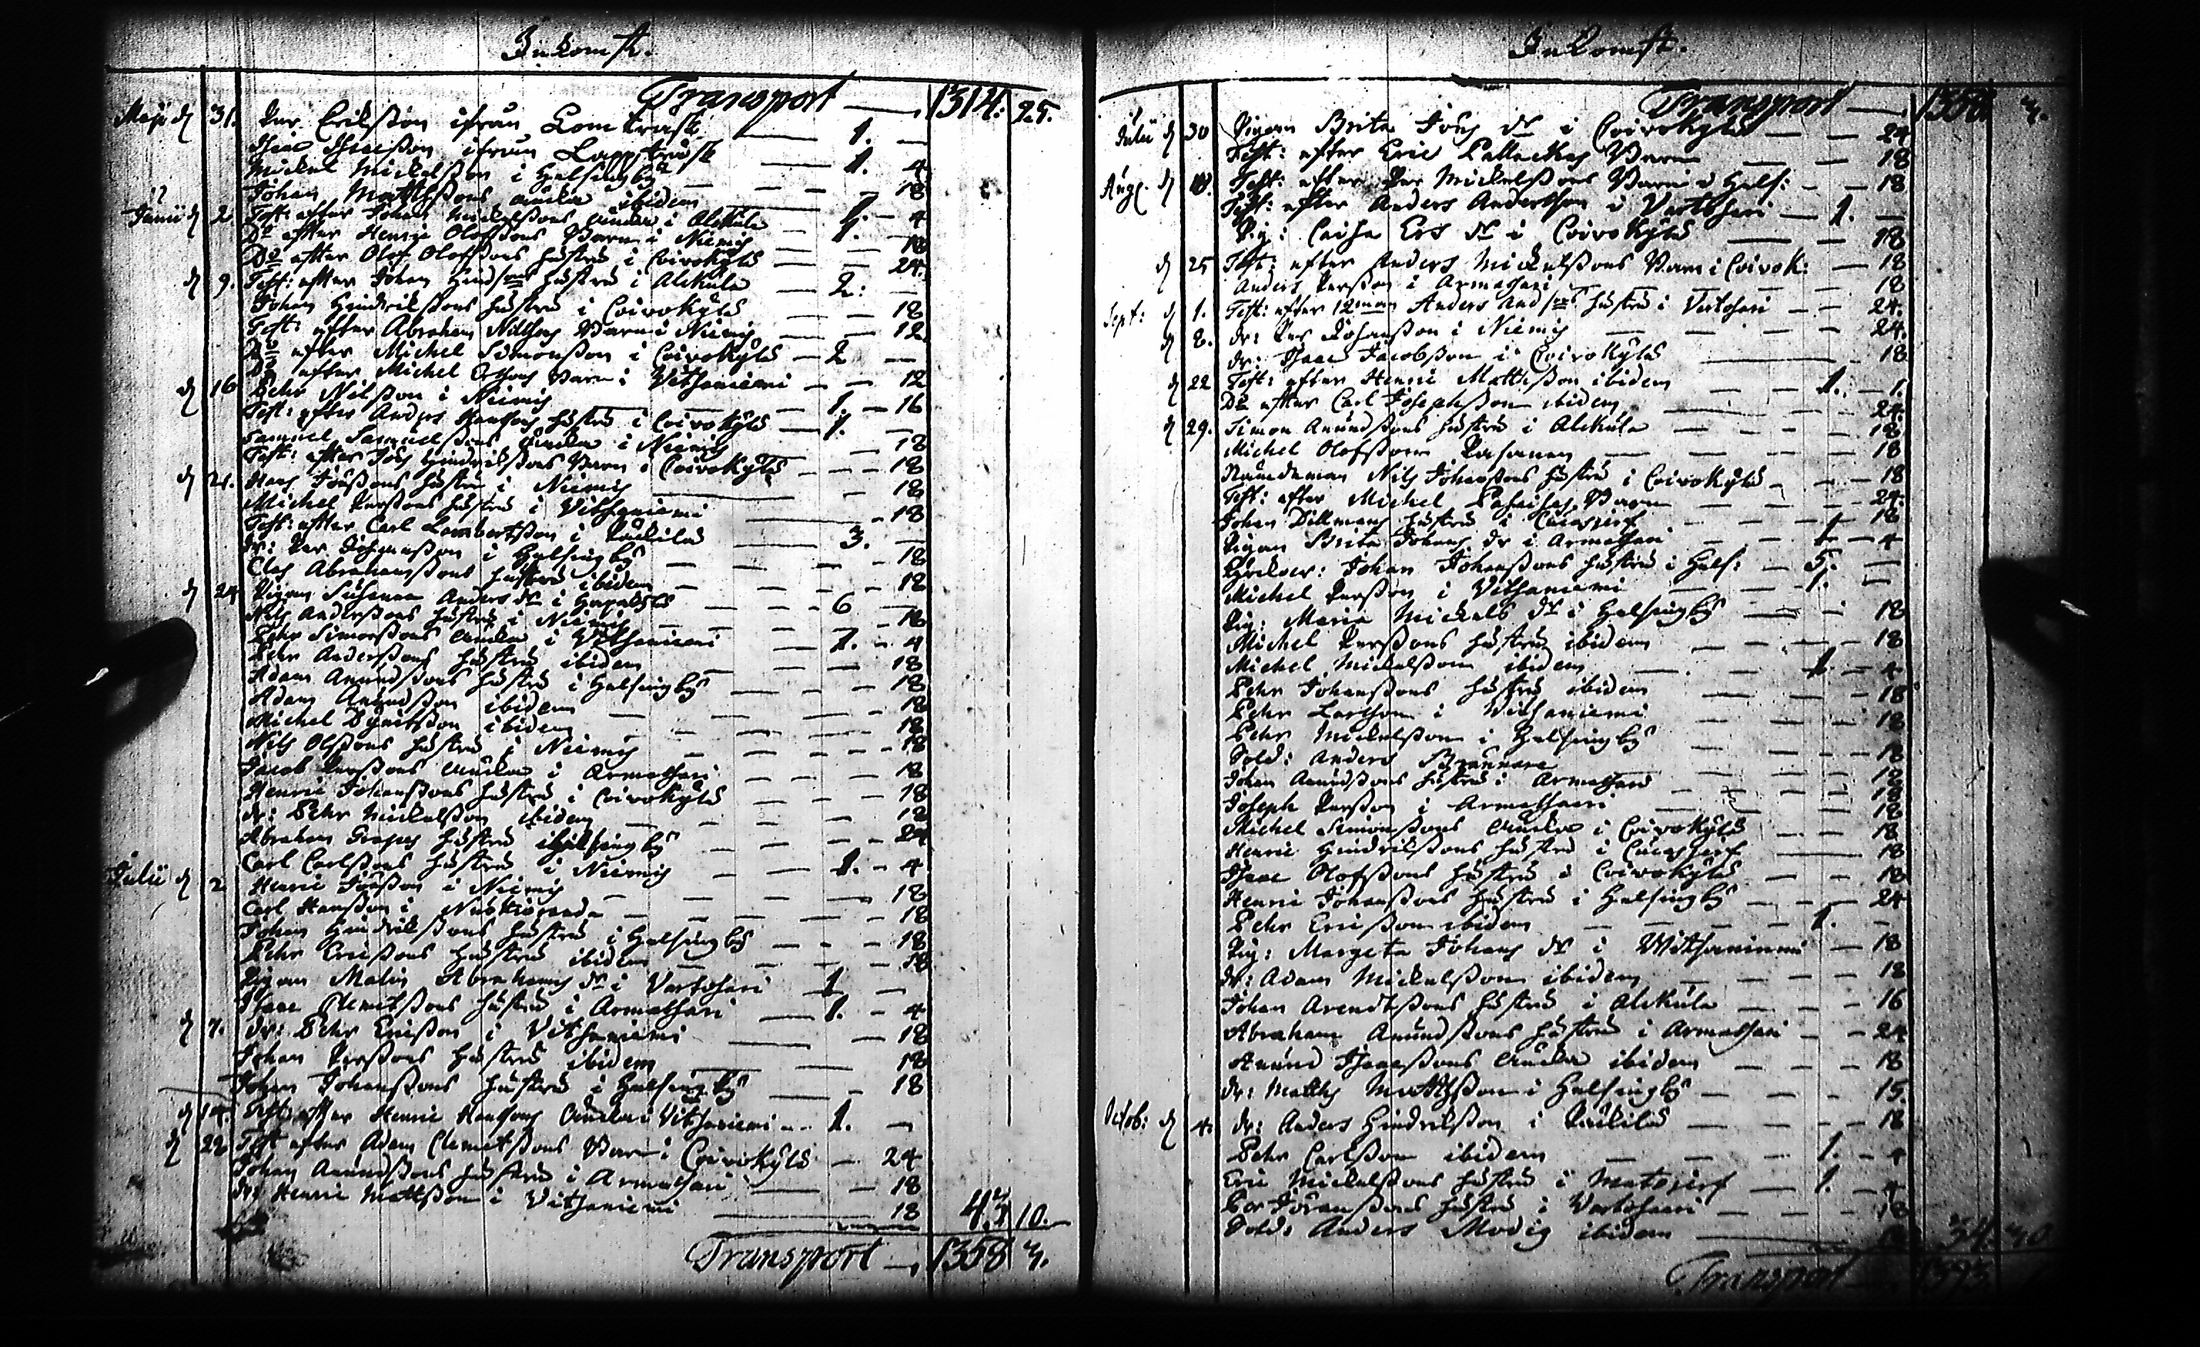 Inkomst.
Transport — 1314. 25.
Maji d 31. Per Eriksson ifrån Comtrask — 1. —
Isac Isacsson ifrån Lapptrask — 1. 4
Mickel Mickelsson i Helsingby — 18
Johan Matthssons Encka ibidem — 1. 4
Junii d 2 Test: efter Johan Mickelssons Encka i Alckula — 1. —
Do efter Henric Olofssons Barn i Niemis — 18
Do efter Olof Olofssons hustru i Coivokylä — 24.
d 9. Test: efter Johan Hindss hustru i Alckula — 2. —
Johan Hindrikssons hustru i Coivokylä — 18
Test: efter Abraham Nilssons Barn i Niemis — 12.
Do efter Michel Simonsson i Coivokylä — 2 —
Do efter Michel Barn i Vitsaniemi — 12
d 16 Pehr Nilsson i Niemis — 1. — 16
Test: efter Anders hustru i Coivokylä — 1. —
Samuel Samuelssons Encka i Niemis — 18
Test: efter Jöns Hindrikssons Barn i Coivokylä — 18
d 21. Hans Jönssons hustru i Niemis — 18
Michel Perssons hustru i Vitsaniemi — 18
Test: efter Carl Lambertsson i Päckilä — 3. —
dr: Per Johansson i Helsingby — 18
Clas Abrahamssons hustru ibidem — 18
d 24 Pigan Susanna Anders dr i — 6
Nils Anderssons hustru i Niemis — 18
Pehr Simonssons Encka i Vitsaniemi — 1. — 4
Pehr Anderssons hustru ibidem — 18
Adam Amundssons hustru i Helsingby — 18
Adam Amundsson ibidem — 18
Michel ibidem — 18
Nils Olssons hustru i Niemis — 18
Jacob Perssons Encka i Armassari — 18
Henric Johanssons hustru i Coivokylä — 18
dr: Pehr Mickelsson ibidem — 12
Abraham Grapes hustru i Helsingby — 24
Carl Carlssons hustru i Niemis — 1. — 4
Julii d 2. Henric Jönsson i Niemis — 18
Carl Hansson i — 18
Johan Hindrikssons hustru i Helsingby — 18
Pehr Ericssons hustru ibidem — 18
Pigan Malin Abrahams dr i Vartosari — 1 —
Isac Clemetssons hustru i Armassari — 1. — 4
d 7. dr: Pehr Ericsson i Vitsaniemi — 18
Johan Perssons hustru ibidem — 18
Johan Johanssons hustru i Helsingby — 18
d 14. Test: efter Henric Hanssons Encka i Vitsaniemi — 1. —
d 22 Test efter Adam Clemetssons Barn i Coivokylä — 24
Johan Amundssons hustru i Armassari — 18
dr: Henric Mattsson i Vitsaniemi — 18 43 10.
Transport — 1358 3.
Inkomst.
Transport — 1358 3.
Julii d 30 Pigan Brita Jöns dr i Coivokylä — 24
Test: efter Eric Pallackas Barn — 18
Aug. d Test: efter Per Mickelssons Barn i Hels: — 18
Test: efter Anders Andersson i Vartosari — 1. —
Pig: Caisa Ers dr i Coivokylä — 18
d 25 Test: efter Anders Mickelssons Barn i Coivok: — 18
Anders Persson i Armassari — 18
Sept: d 1. Test: efter 12man Anders Andss hustru i Vartosari — 24.
d 8. dr: Per Johansson i Niemis — 24.
dr: Isac Jacobsson i Coivokylä — 18
d 22 Test: efter Henric Mattsson ibidem — 1. — 1.
Do efter Carl Josephsson ibidem — 24.
d 29. Simon Amundssons hustru i Alckula — 18
Michel Olofsson — 18
Nämdeman Nils Johanssons hustru i Coivokylä — 18
Test: efter Michel Barn — 24.
Johan Dillmans hustru i — 18
Pigan Brita Johans dr i Armassari — 1 — 4
Johan Johanssons hustru i Hels: — 5. —
Michel Persson i Vitsaniemi — 1. —
Pig: Maria Mickels dr i Helsingby — 18
Michel Perssons hustru ibidem — 18
Michel Mickelsson ibidem — 1. — 4.
Pehr Johanssons hustru ibidem — 18
Pehr Larsson i Vitsaniemi — 18
Pehr Mickelsson i Helsingby — 18
Sold: Anders Brännare
Johan Amundssons hustru i Armassari — 18
Joseph Persson i Armassari — 18
Michel Simonssons Encka i Coivokylä — 18
Henric Hindrikssons hustru i — 18
Isac Olofssons hustru i Coivokylä — 18
Henric Johanssons hustru i Helsingby — 24
Pehr Ericsson ibidem — 1. —
Pig: Margeta Johans dr i Witsaniemi — 18
dr: Adam Mickelsson ibidem — 18
Johan Arendtssons hustru i Alckula — 16
Abraham Amundssons hustru i Armassari — 24
Amund Isacssons Encka ibidem — 18
dr: Matths Matthsson i Helsingby — 15.
Octob: d 4. dr: Anders Hindriksson i Päckilä — 18
Pehr Carlsson ibidem — 1. — 4
Eric Mickelssons hustru i Matojerf — 1. — 4
Per Göranssons hustru i Vartosari — 18
Sold: Anders Modig ibidem — 34. 30
Transport — 1393